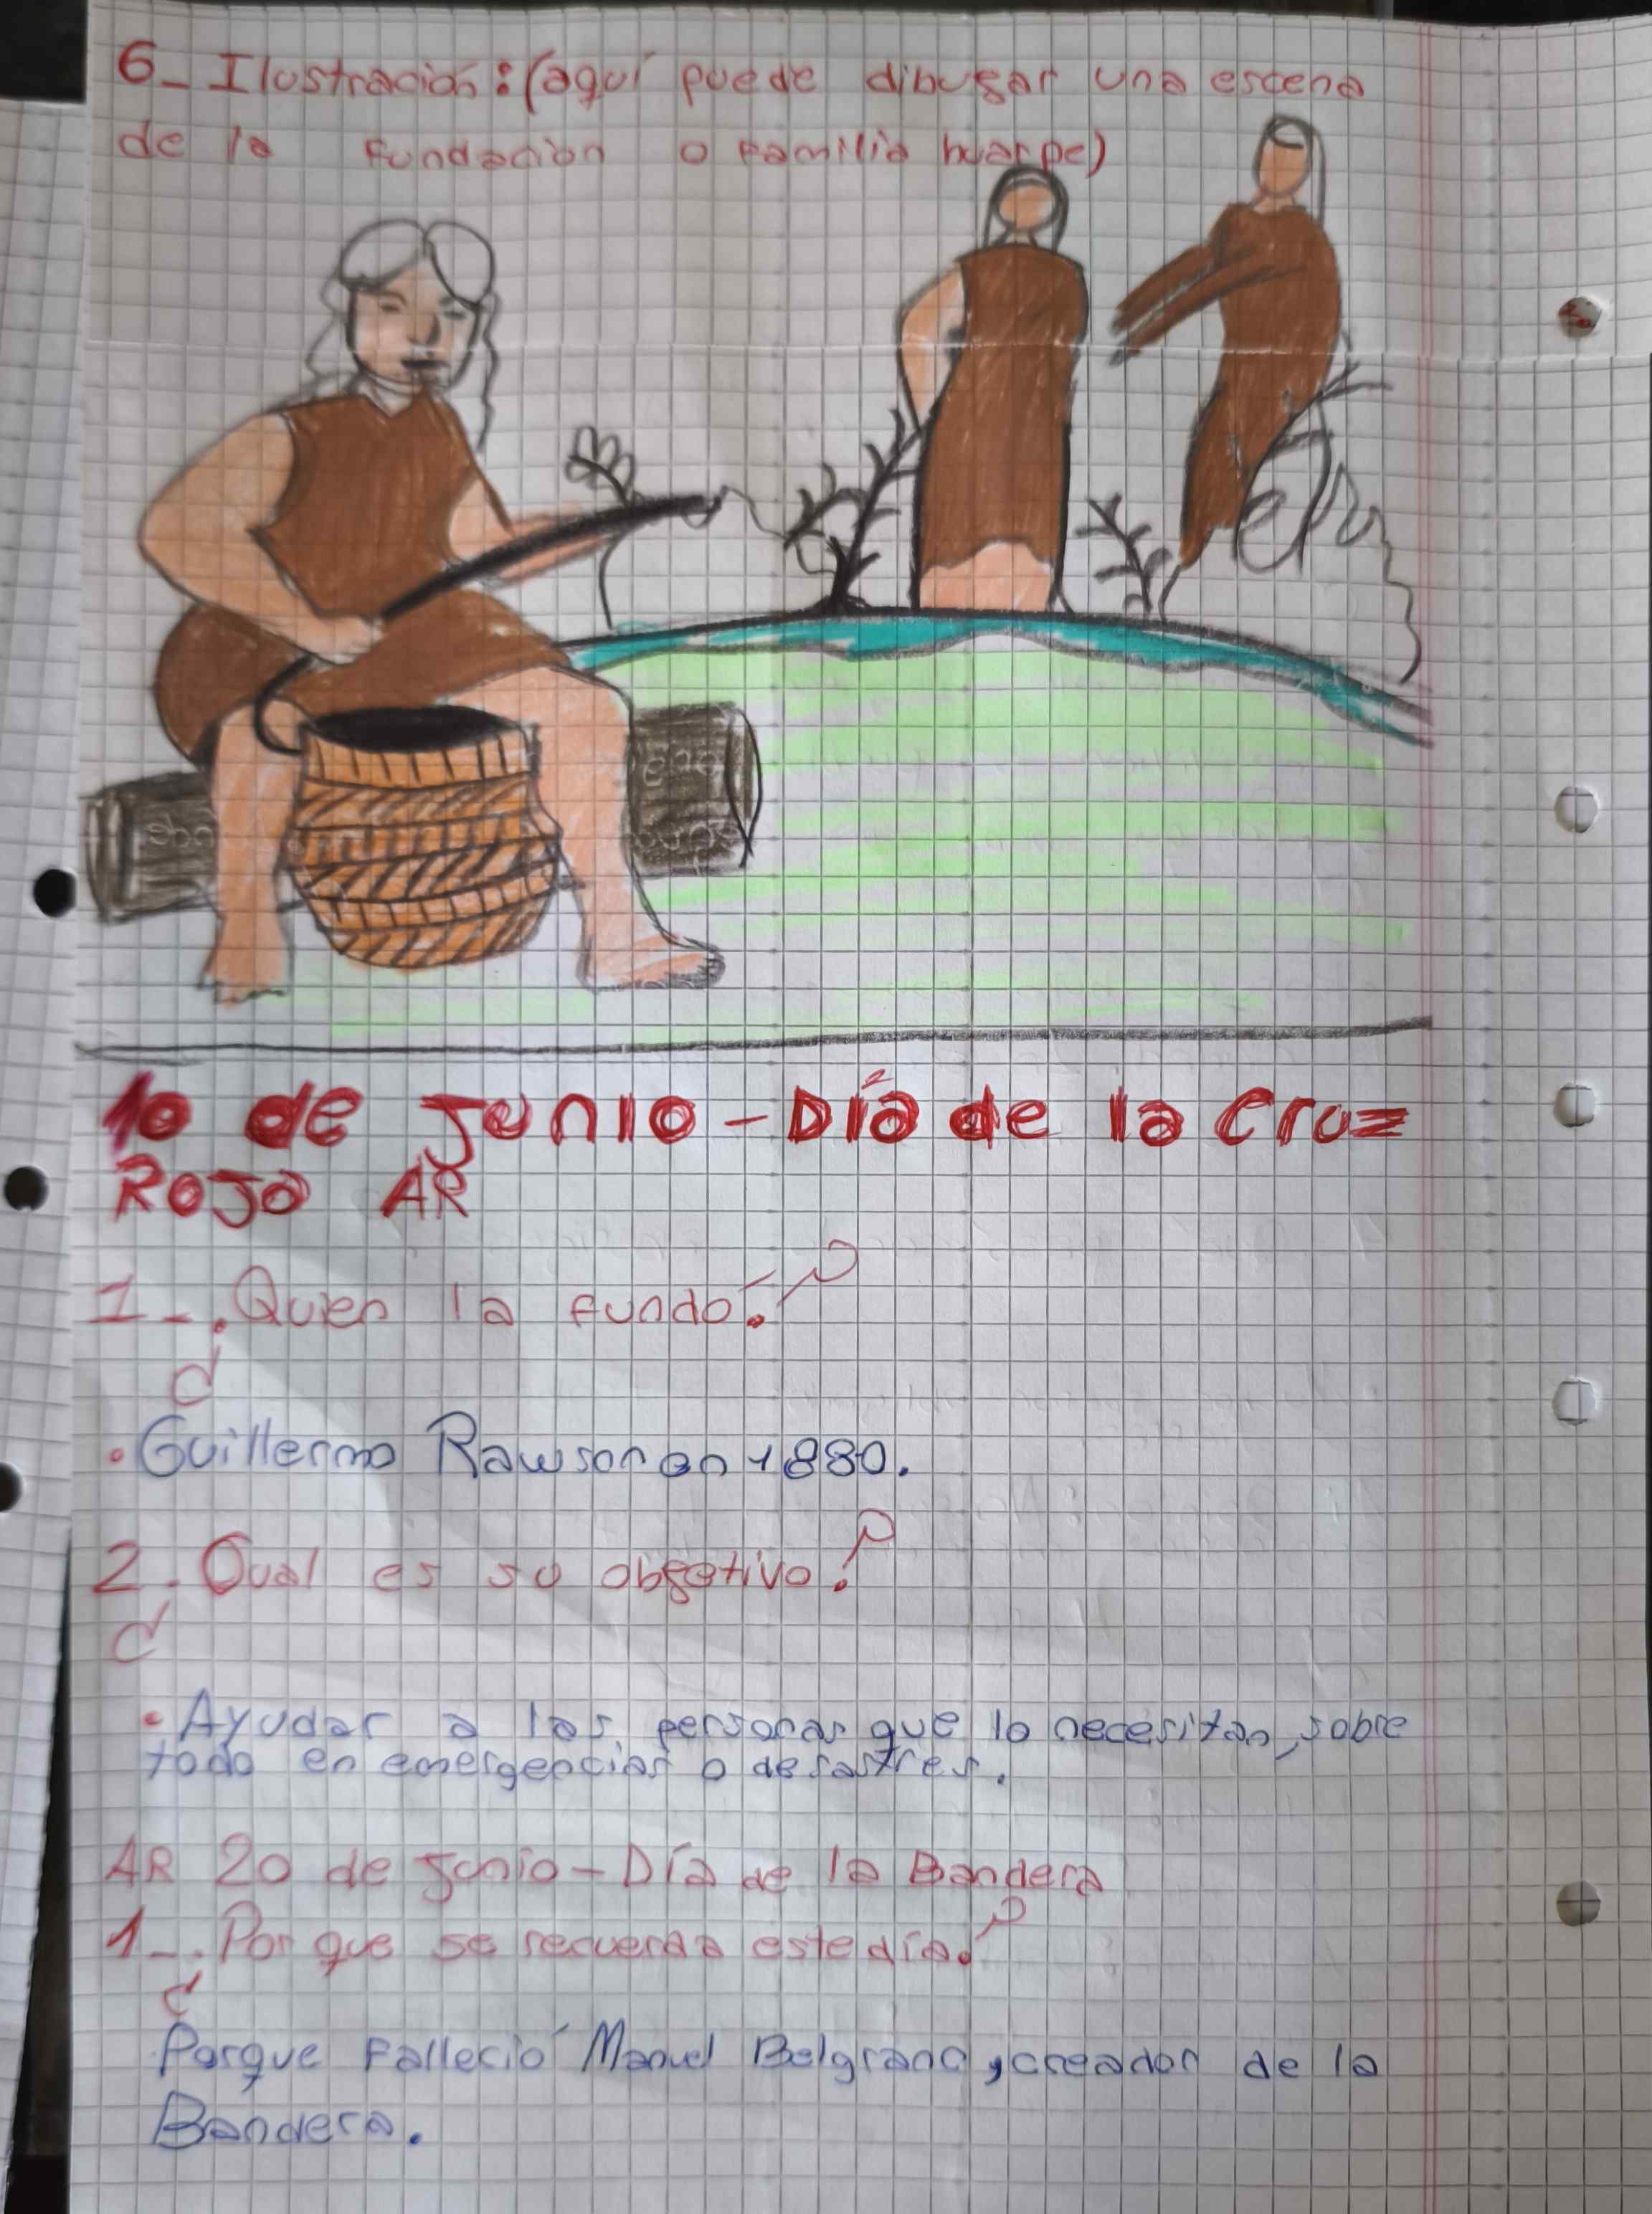 6- Ilustración: (aquí puede dibugar una escena
de la fundación o familia huarpe)
10 de Junio - Día de la Cruz
Roja AR
1- ¿Quien la fundó?
• Guillermo Rawson en 1880.
2. ¿Qual es su obgetivo?
• Ayudar a las personas que lo necesitan, sobre
todo en emergencias o desastres.
AR 20 de Junio - Día de la Bandera
1- ¿Por que se recuerda este día?
Porque Falleció Manuel Belgrano, creador de la
Bandera.